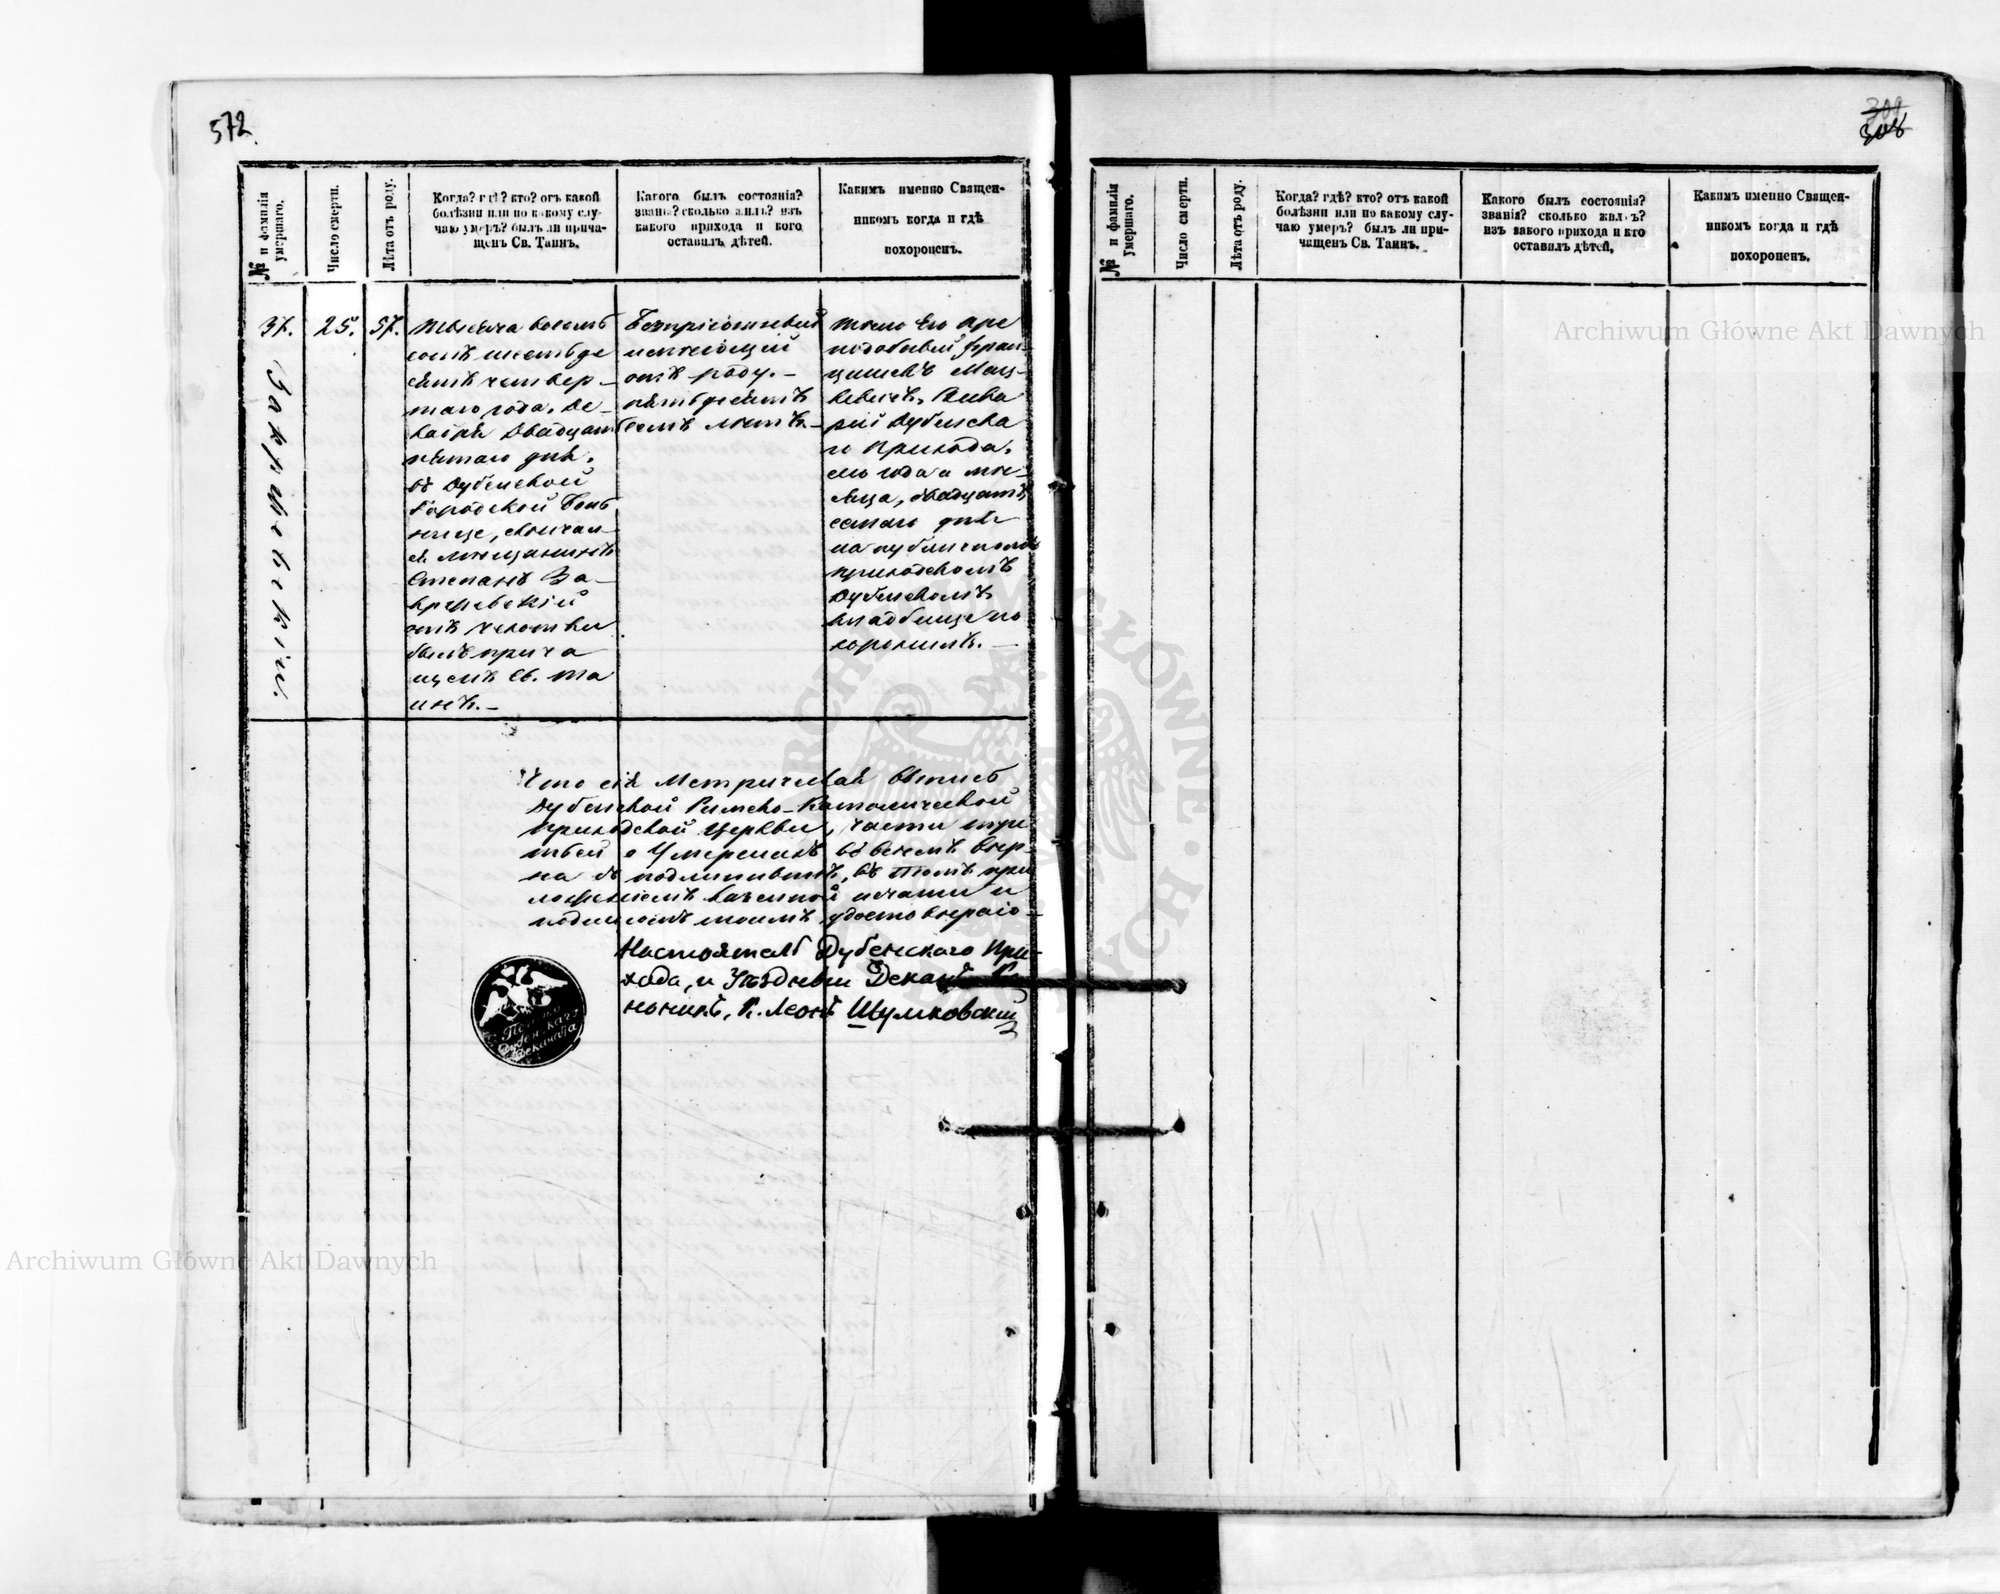 572.
№ и фамилія умершаго.
Число смерти.
Лѣта отъ роду.
Когда? гдѣ? кто? отъ какой
болѣзни или по какому слу-
чаю умеръ? былъ ли прича-
щенъ Св. Таинъ.
Какого былъ состоянія?
званія? сколько жилъ? изъ
какого прихода и кого
оставилъ дѣтей.
Какимъ именно Священ-
никомъ когда и гдѣ
похороненъ.
37.
Закржевскій.
25.
57.
тысяча восемь
сотъ шестьде
сятъ четвер-
таго года, Де-
кабря двадцать
пятаго дня,
въ Дубенской
Городской Боль
нице, скончал-
ся мещанинъ
Степанъ За-
кржевскій
отъ чахотки
былъ прича
щенъ Св. Та
инъ.-
Безпріютный
имеющій
отъ роду.-
пятьдесятъ
семь летъ.-
тело Его пре
подобный Фран-
цишекъ Мац-
кевичъ, Вика
рій Дубенска
го Прихода,
сего года и ме-
сяца, двадцать
семаго дня
на публичномъ
приходскомъ
Дубенскомъ
кладбище по
хоронилъ.-
Что сія Метрическая выпись
Дубенской Римско-Католической
приходской Церкви, части тре
тьей о Умершихъ во всемъ вер-
на съ подлиннымъ, въ томъ при
ложеніемъ казенной печати и
подписомъ моимъ удостоверяю-
Настоятель Дубенскаго При-
хода, и Уѣздный Деканъ Ка
ноникъ, К. Леонъ Шумковскій
Дубенскаго
Деканата
308
№ и фамилія умершаго.
Число смерти.
Лѣта отъ роду.
Когда? гдѣ? кто? отъ какой
болѣзни или по какому слу-
чаю умеръ? былъ ли при-
чащенъ Св. Таинъ.
Какого былъ состоянія?
званія? сколько жилъ?
изъ какого прихода и кто
оставилъ дѣтей.
Какимъ именно Священ-
никомъ когда и гдѣ
похороненъ.
Archiwum Główne Akt Dawnych
Archiwum Główne Akt Dawnych